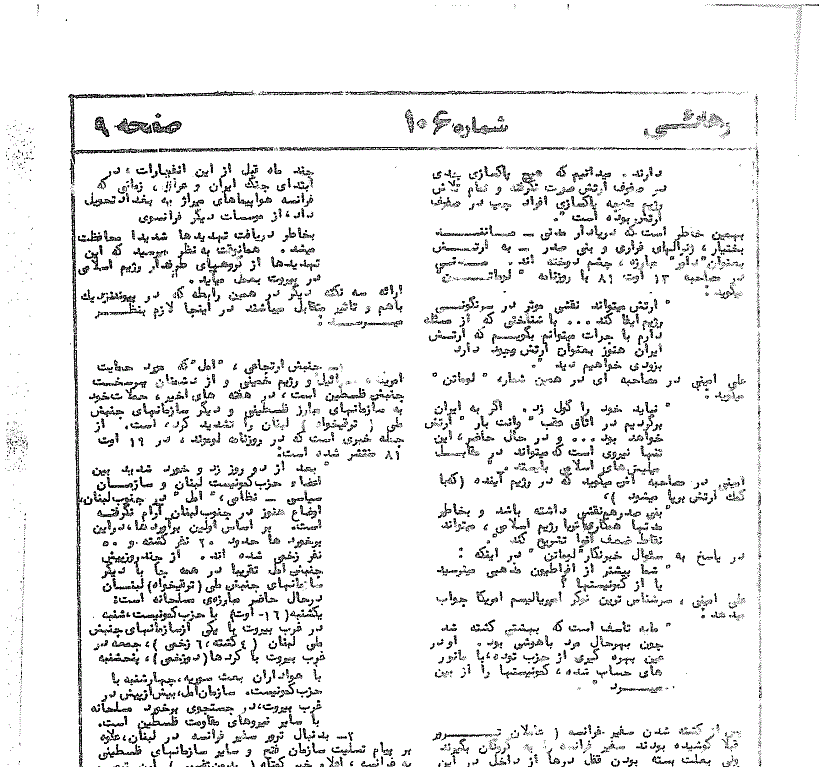 رهائی
شماره ۱۰۶
صفحه ۹
دارند. میدانیم که هیچ پاکسازی جدی
در صفوف ارتش صورت نگرفته و تمام تلاش
رژیم متوجه پاکسازی افراد چپ در صفوف
ارتش بوده است ".
بهمین خاطر است که دریادار مدنی ـ مانند
بختیار، ژنرالهای فراری و بنی صدر ـ به ارتش
بعنوان "داور" مبارزه، چشم دوخته اند. مدنی
در مصاحبه ۱۳ اوت ۸۱ با روزنامه "لوماتن"
میگوید:
" ارتش میتواند نقشی موثر در سرنگونی
رژیم ایفا کند ... با شناختی که از مسئله
دارم با جرات میتوانم بگویم که ارتش
ایران هنوز بعنوان ارتش وجود دارد
بزودی خواهیم دید ".
علی امینی در مصاحبه ای در همین شماره " لوماتن "
میگوید:
" نباید خود را گول زد. اگر به ایران
برگردیم در اتاق عقب " وانت بار " ارتش
خواهد بود ... و در حال حاضر، این
تنها نیروی است که میتواند در مقابل
میلیشهای اسلامی بایستد. "
امینی در مصاحبه اش میگوید که در رژیم آینده (که با
کمک ارتش برپا میشود )،
"بنی صدر هم نقشی داشته باشد و بخاطر
مدتها همکاری با رژیم اسلامی، میتواند
نقاط ضعف آنرا تشریح کند ".
در پاسخ به سئوال خبرنگار "لوماتن " در اینکه :
" شما بیشتر از افراطیون مذهبی میترسید
یا از کمونیستها ؟
علی امینی، سرشناس ترین نوکر امپریالیسم امریکا جواب
میدهد:
" مایه تاسف است که بهشتی کشته شد
چون بهرحال مرد باهوشی بود. او در
عین بهره گیری از حزب توده، با مانور
های حساب شده، کمونیستها را از بین
میبرد " .
پس از کشته شدن سفیر فرانسه ( عاملان ترور
قبلا کوشیده بودند سفیر فرانسه را به گروگان بگیرند
ولی بعلت بسته بودن قفل درها از داخل در این
چند ماه قبل از این انفجارات، در
ابتدای جنگ ایران و عراق، زمانی که
فرانسه هواپیماهای میراژ به بغداد تحویل
داد، از موسسات دیگر فرانسوی
بخاطر دریافت تهدیدها شدیدا محافظت
میشد. همانوقت به نظر میرسید که این
تهدیدها از گروههای طرفدار رژیم اسلامی
در بیروت بعمل میآید.
ارائه سه نکته دیگر در همین رابطه که در پیوند نزدیک
باهم و تاثیر متقابل میباشند در اینجا لازم بنظر
میرسد:
۱ـ جنبش ارتجاعی، "امل" که مورد حمایت
امریکا، اسرائیل و رژیم خمینی و از دشمنان سرسخت
جنبش فلسطین است، در هفته های اخیر، حملات خود
به سازمانهای مبارز فلسطینی و دیگر سازمانهای جنبش
ملی ( ترقیخواه ) لبنان را تشدید کرد، است. از
جمله خبری است که در روزنامه لوموند، در ۱۹ اوت
۸۱ منتشر شده است:
" بعد از دو روز زد و خورد شدید بین
اعضاء حزب کمونیست لبنان و سازمان
سیاسی ـ نظامی، " امل " در جنوب لبنان،
اوضاع هنوز در جنوب لبنان آرام نگرفته
است. بر اساس اولین برآوردها، دراین
برخورد ها حدود ۲۰ نفر کشته و ۵۰
نفر زخمی شده اند. از چند روز پیش
جنبش امل تقریبا در همه جا با دیگر
سازمانهای جنبش ملی (ترقیخواه) لبنان
درحال حاضر مبارزه ی مسلحانه است:
یکشنبه (۱۶ اوت) با حزب کمونیست، شنبه
در غرب بیروت با یکی از سازمانهای جنبش
ملی لبنان ( ۴ کشته، ۶ زخمی )، جمعه در
غرب بیروت با کردها (دوزخمی)، پنجشنبه
با هواداران بعث سوریه، چهارشنبه با
حزب کمونیست. سازمان امل، بیش از پیش در
غرب بیروت، در جستجوی برخورد مسلحانه
با سایر نیروهای مقاومت فلسطین است.
۲ـ بدنبال ترور سفیر فرانسه در لبنان، علاوه
بر پیام تسلیت سازمان فتح و سایر سازمانهای فلسطینی
به فرانسه،